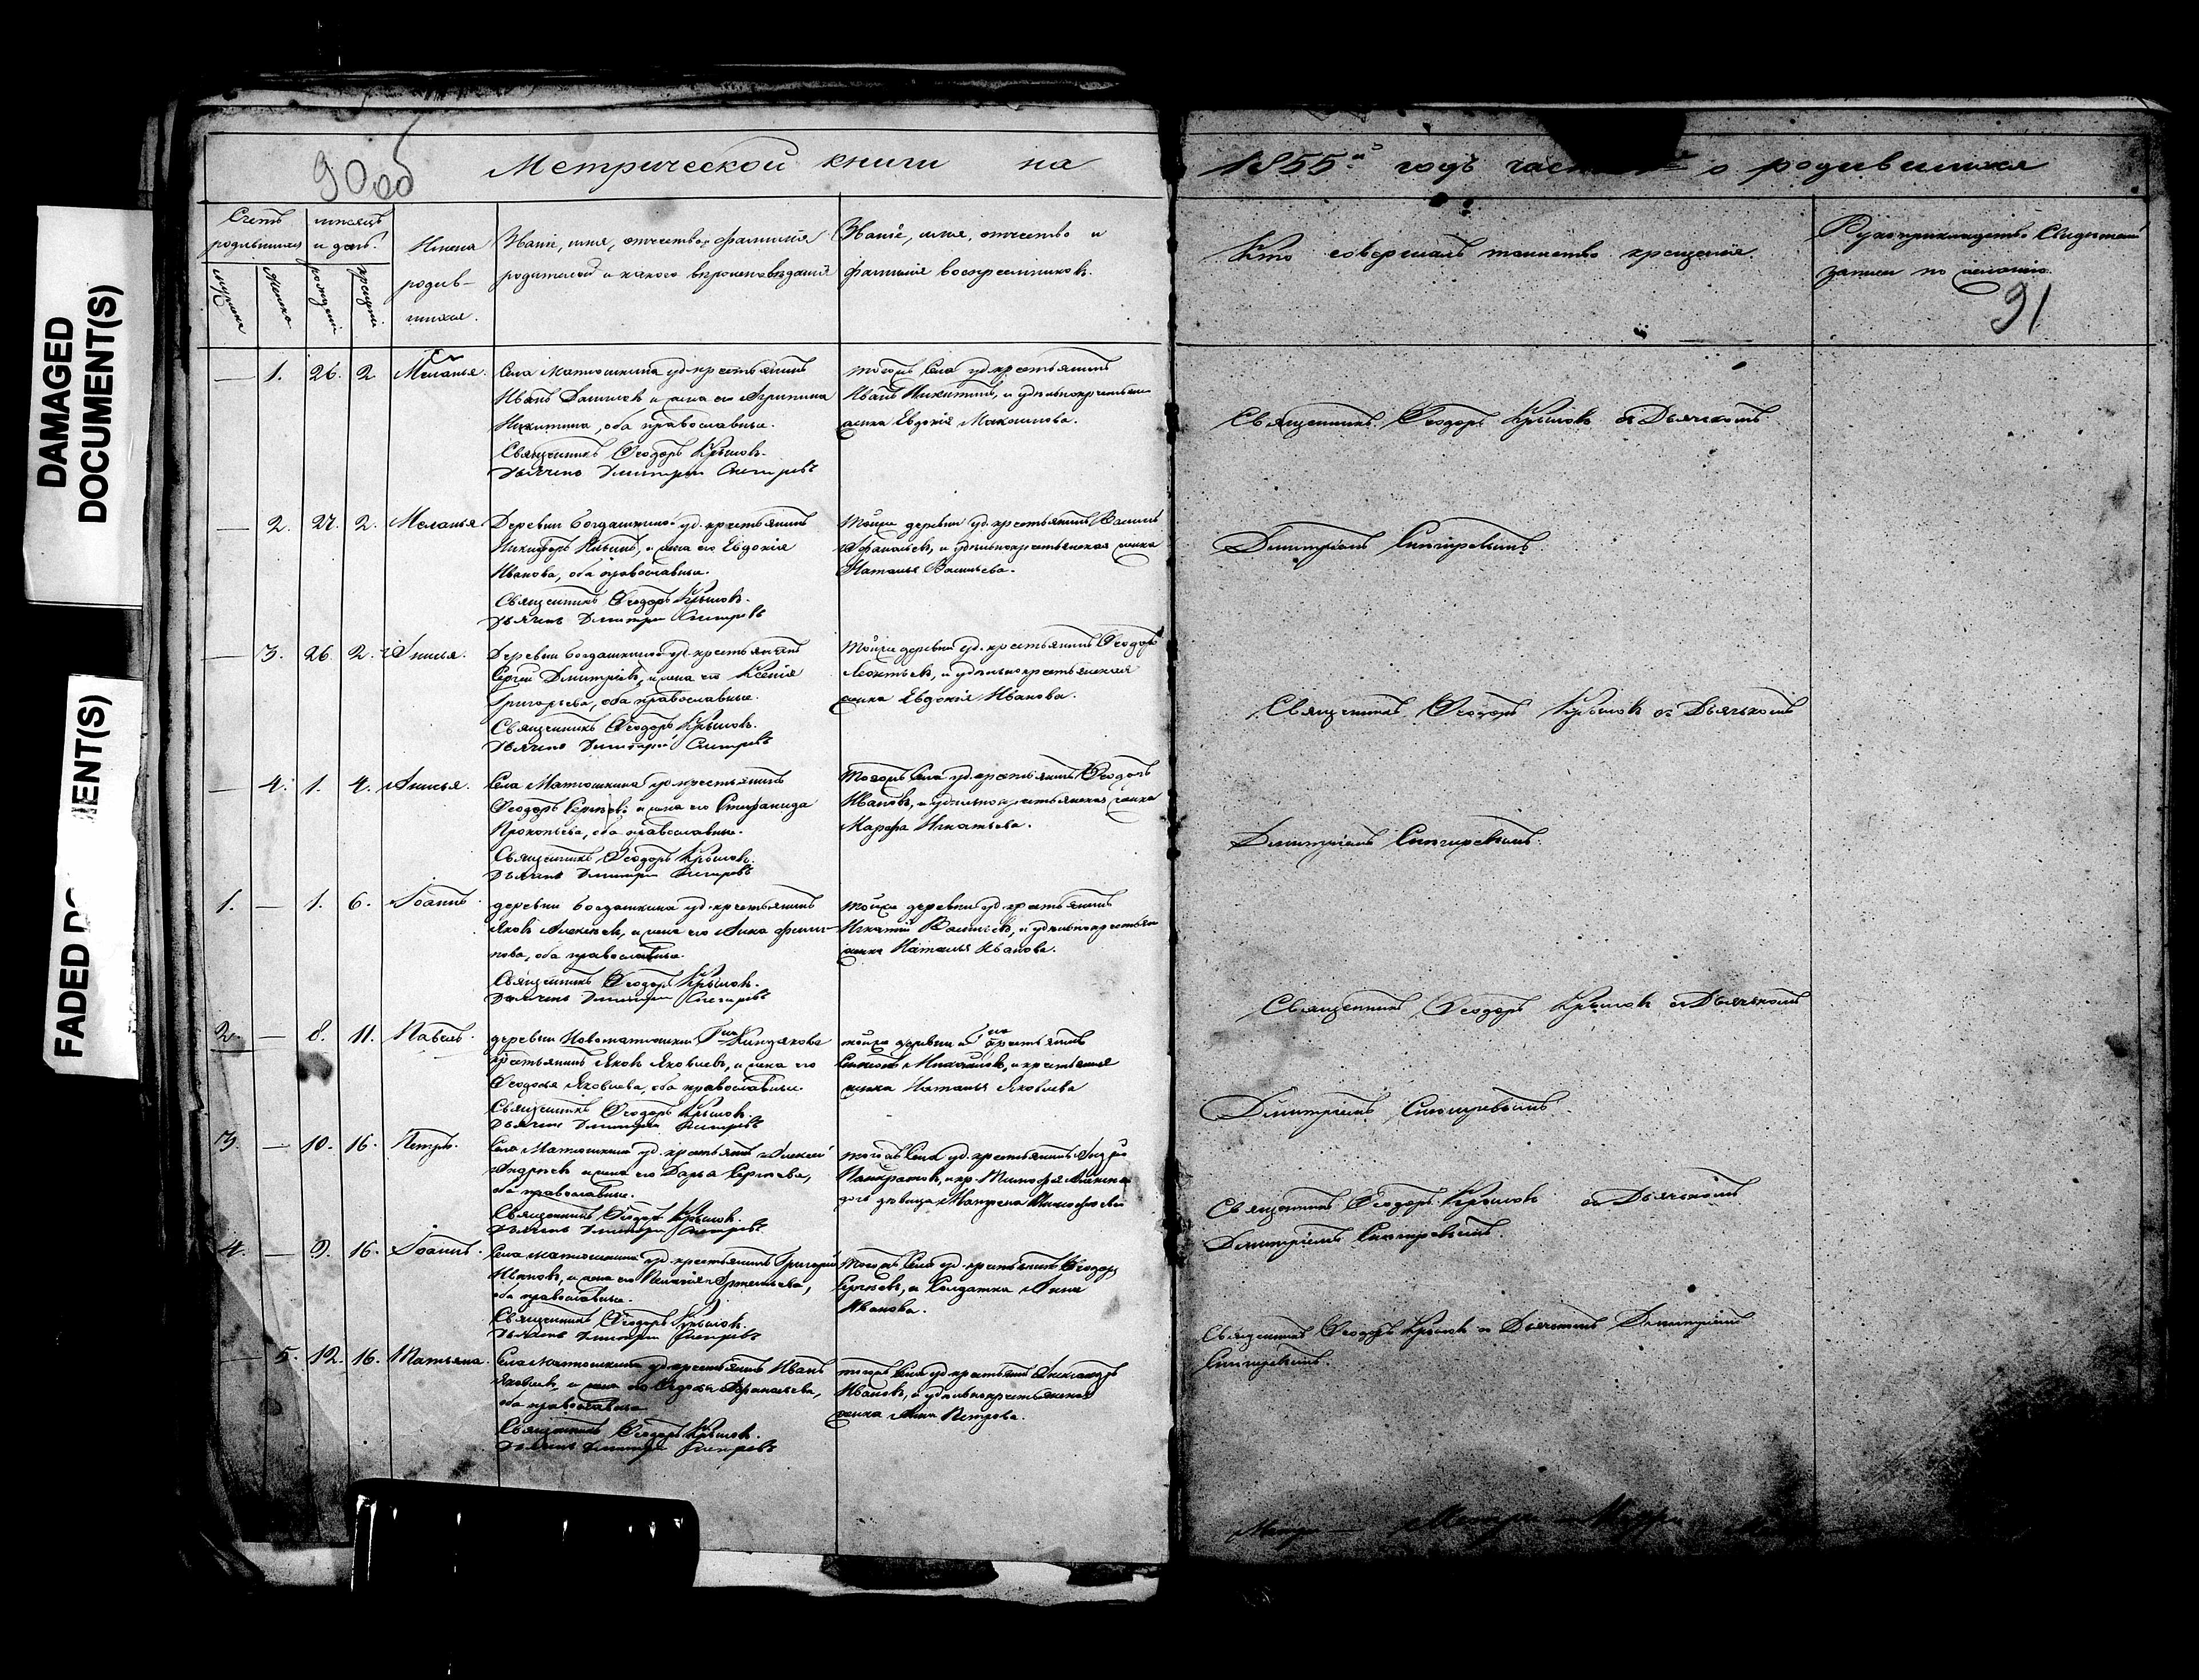 DAMAGED
DOCUMENT(S)
FADED
MENT(S)
90 об
Метрической книги на
1855й годъ о родившихся
Счетъ родившихся
мѣсяцъ и день.
мужска
женска
рожденія
крещенія
Имена
родив-
шихся.
Званіе, имя, отчество и фамилія
родителей и какого вѣроисповѣданія
Званіе, имя, отчество и
фамилія воспреемниковъ.
Кто совершалъ таинство крещенія.
Рукоприкладство Свидетелей
записи по желанію
91
— 1. 26. 2 Меланья.
Села Матюшкина уд. крестьянинъ
Иванъ Даниловъ и жена его Агрипина
Никитина, оба православные.
Священникъ Ѳеодоръ Крыловъ.
Дьячекъ Димитрій Снегиревъ
тогожъ Села уд. крестьянинъ
Иванъ Никитинъ, и удѣльнокрестьян
женка Евдокія Максимова.
Священникъ Ѳеодоръ Крыловъ съ Дьячкомъ
— 2. 27. 2. Меланья
Деревни Богдашкиной уд. крестьянинъ
Никифоръ Ильинъ, и жена его Евдокія
Иванова, оба православные.
Священникъ Ѳеодоръ Крыловъ.
Дьячекъ Димитрій Снегиревъ
Тойже деревни уд. крестьянинъ Василій
Афанасьевъ, и удѣльнокрестьянская женка
Наталья Васильева.
Димитріемъ Снигиревымъ.
— 3. 26 2. Анисья.
Деревни Богдашкиной уд. крестьянинъ
Сергей Димитріевъ, и жена его Ксенія
Григорьева, оба православные.
Священникъ Ѳеодоръ Крыловъ.
Дьячекъ Димитрій Снегиревъ
Тойже деревни уд. крестьянинъ Ѳеодоръ
Леонтьевъ, и удѣльнокрестьянская
женка Евдокія Иванова.
Священникъ Ѳеодоръ Крыловъ съ Дьячькомъ
— 4. 1. 4. Анисья.
Села Матюшкина уд. крестьянинъ
Ѳеодоръ Сергѣевъ и жена его Стефанида
Прокопьева, оба православные.
Священникъ Ѳеодоръ Крыловъ.
Дьячекъ Димитрій Снегиревъ
Тогожъ Села уд. крестьянинъ Ѳеодоръ
Ивановъ, и удѣльнокрестьянская женка
Марфа Игнатьева.
Димитріемъ Снигиревымъ.
1. — 1. 6. Іоаннъ.
деревни Богдашкина уд. крестьянинъ
Яковъ Алексѣевъ, и жена его Анна Филип-
пова, оба православные.
Священникъ Ѳеодоръ Крыловъ.
Дьячекъ Димитрій Снегиревъ
тойже деревни уд. крестьянинъ
Игнатій Васильевъ, и удѣльнокрестьян
женка Наталья Иванова.
Священникъ Ѳеодоръ Крыловъ съ Дьячькомъ
2. — 8. 11. Павелъ.
деревни Новоматюшкин Киндякова
крестьянинъ Яковъ Яковлевъ, и жена его
Ѳеодосья Яковлева, оба православные.
Священникъ Ѳеодоръ Крыловъ.
Дьячекъ Димитрій Снегиревъ
тойже деревни крестьянинъ
Михайловъ, и крестьянская
женка Наталья Яковлева
Димитріемъ Снигиревымъ.
3. — 10. 16. Петръ.
Села Матюшкина уд. крестьянинъ Алексей
Андреевъ и жена его Дарья Сергѣева,
оба православные.
Священникъ Ѳеодоръ Крыловъ.
Дьячекъ Димитрій Снегиревъ
тогожъ Села уд. крестьянинъ Андрей
Панкратовъ, и кр. Тимофея
дочь девица Матрена
Священникъ Ѳеодоръ Крыловъ съ Дьячькомъ
Димитріемъ Снигиревымъ.
4. — 9. 16. Іоаннъ.
Села Матюшкина уд. крестьянинъ Григорій
Ивановъ, и жена его Пелагія Артемьева,
оба православные.
Священникъ Ѳеодоръ Крыловъ.
Дьячекъ Димитрій Снегиревъ
Тогожъ Села уд. крестьянинъ Ѳеодоръ
Сергѣевъ, и Солдатка Анна
Иванова.
Священникъ Ѳеодоръ Крыловъ съ Дьячкомъ Димитріемъ
Снигиревымъ.
— 5. 12. 16. Татьяна.
Села Матюшкина уд. крестьянинъ Иванъ
Яковлевъ, и жена его Афанасьева,
оба православные
Священникъ Ѳеодоръ Крыловъ.
Дьячекъ Димитрій Снегиревъ
тогожъ Села уд. крестьянинъ Александръ
Ивановъ, и удѣльнокрестьянская
женка Анна Петрова.